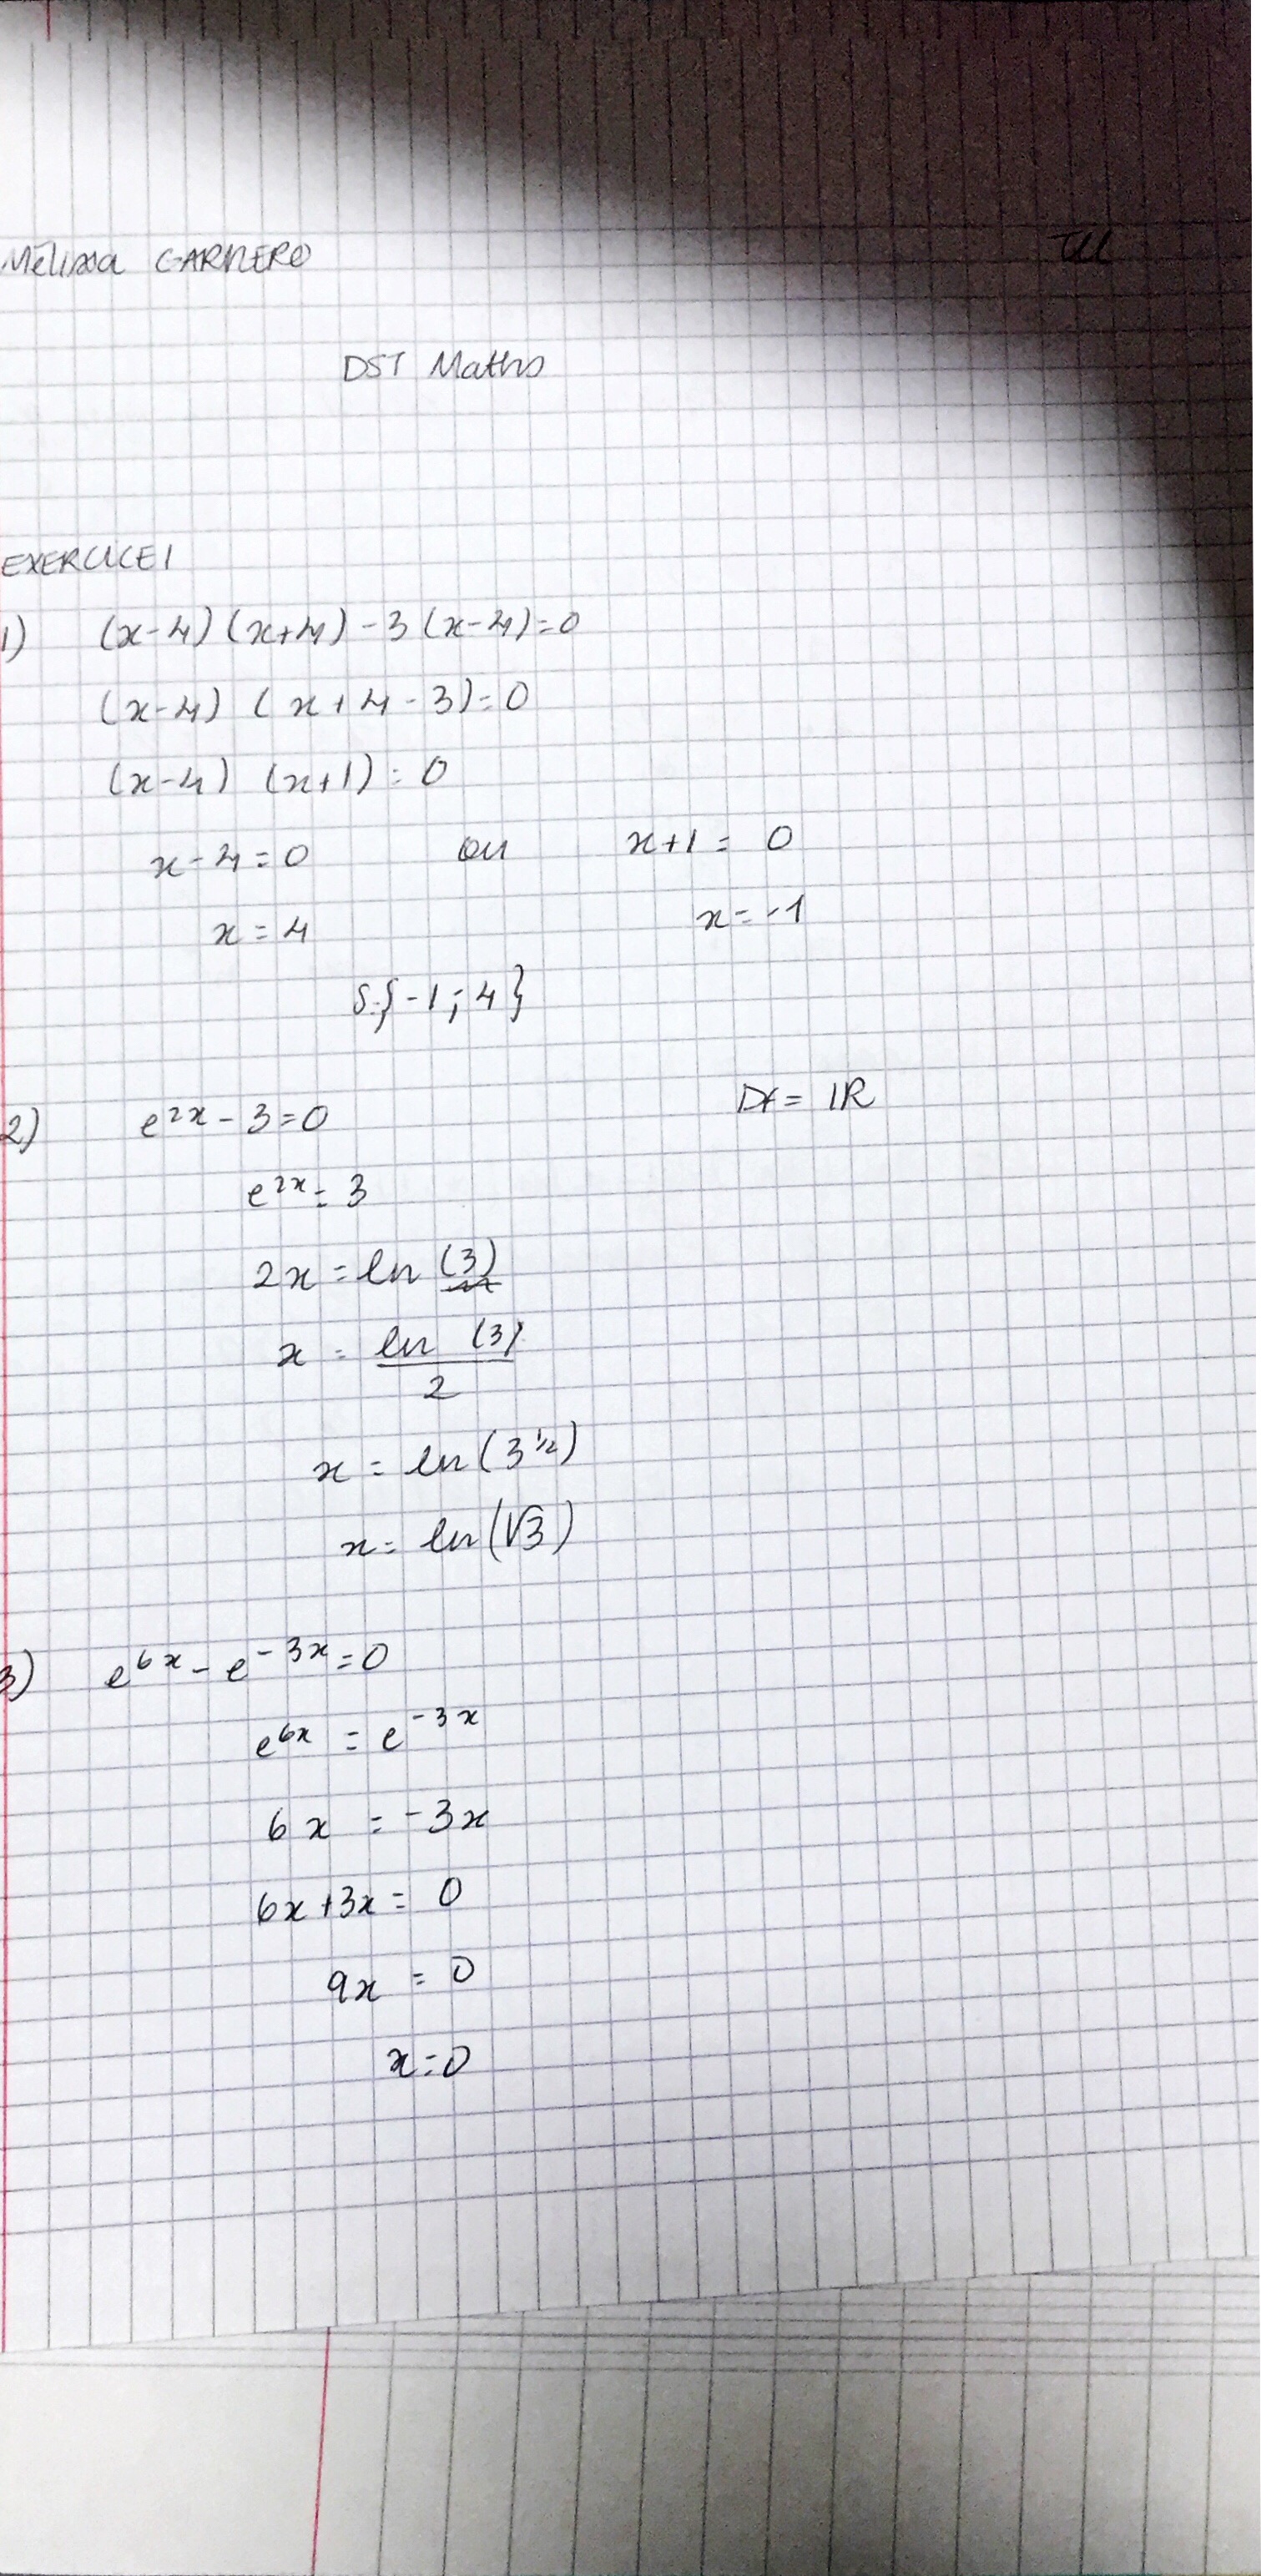 Mélissa CARNERO
DST Maths
EXERCICE 1
1) (x-4)(x+4)-3(x-4)=0
(x-4) (x+4-3)=0
(x-4) (x+1)=0
x-4=0 ou x+1=0
x=4 x=-1
S={-1;4}
2) e^{2x}-3=0 Df=ℝ
e^{2x}=3
2x=ln(3)
x=\frac{ln(3)}{2}
x=ln(3^{1/2})
x=ln(√3)
3) e^{6x}-e^{-3x}=0
e^{6x}=e^{-3x}
6x=-3x
6x+3x=0
9x=0
x=0